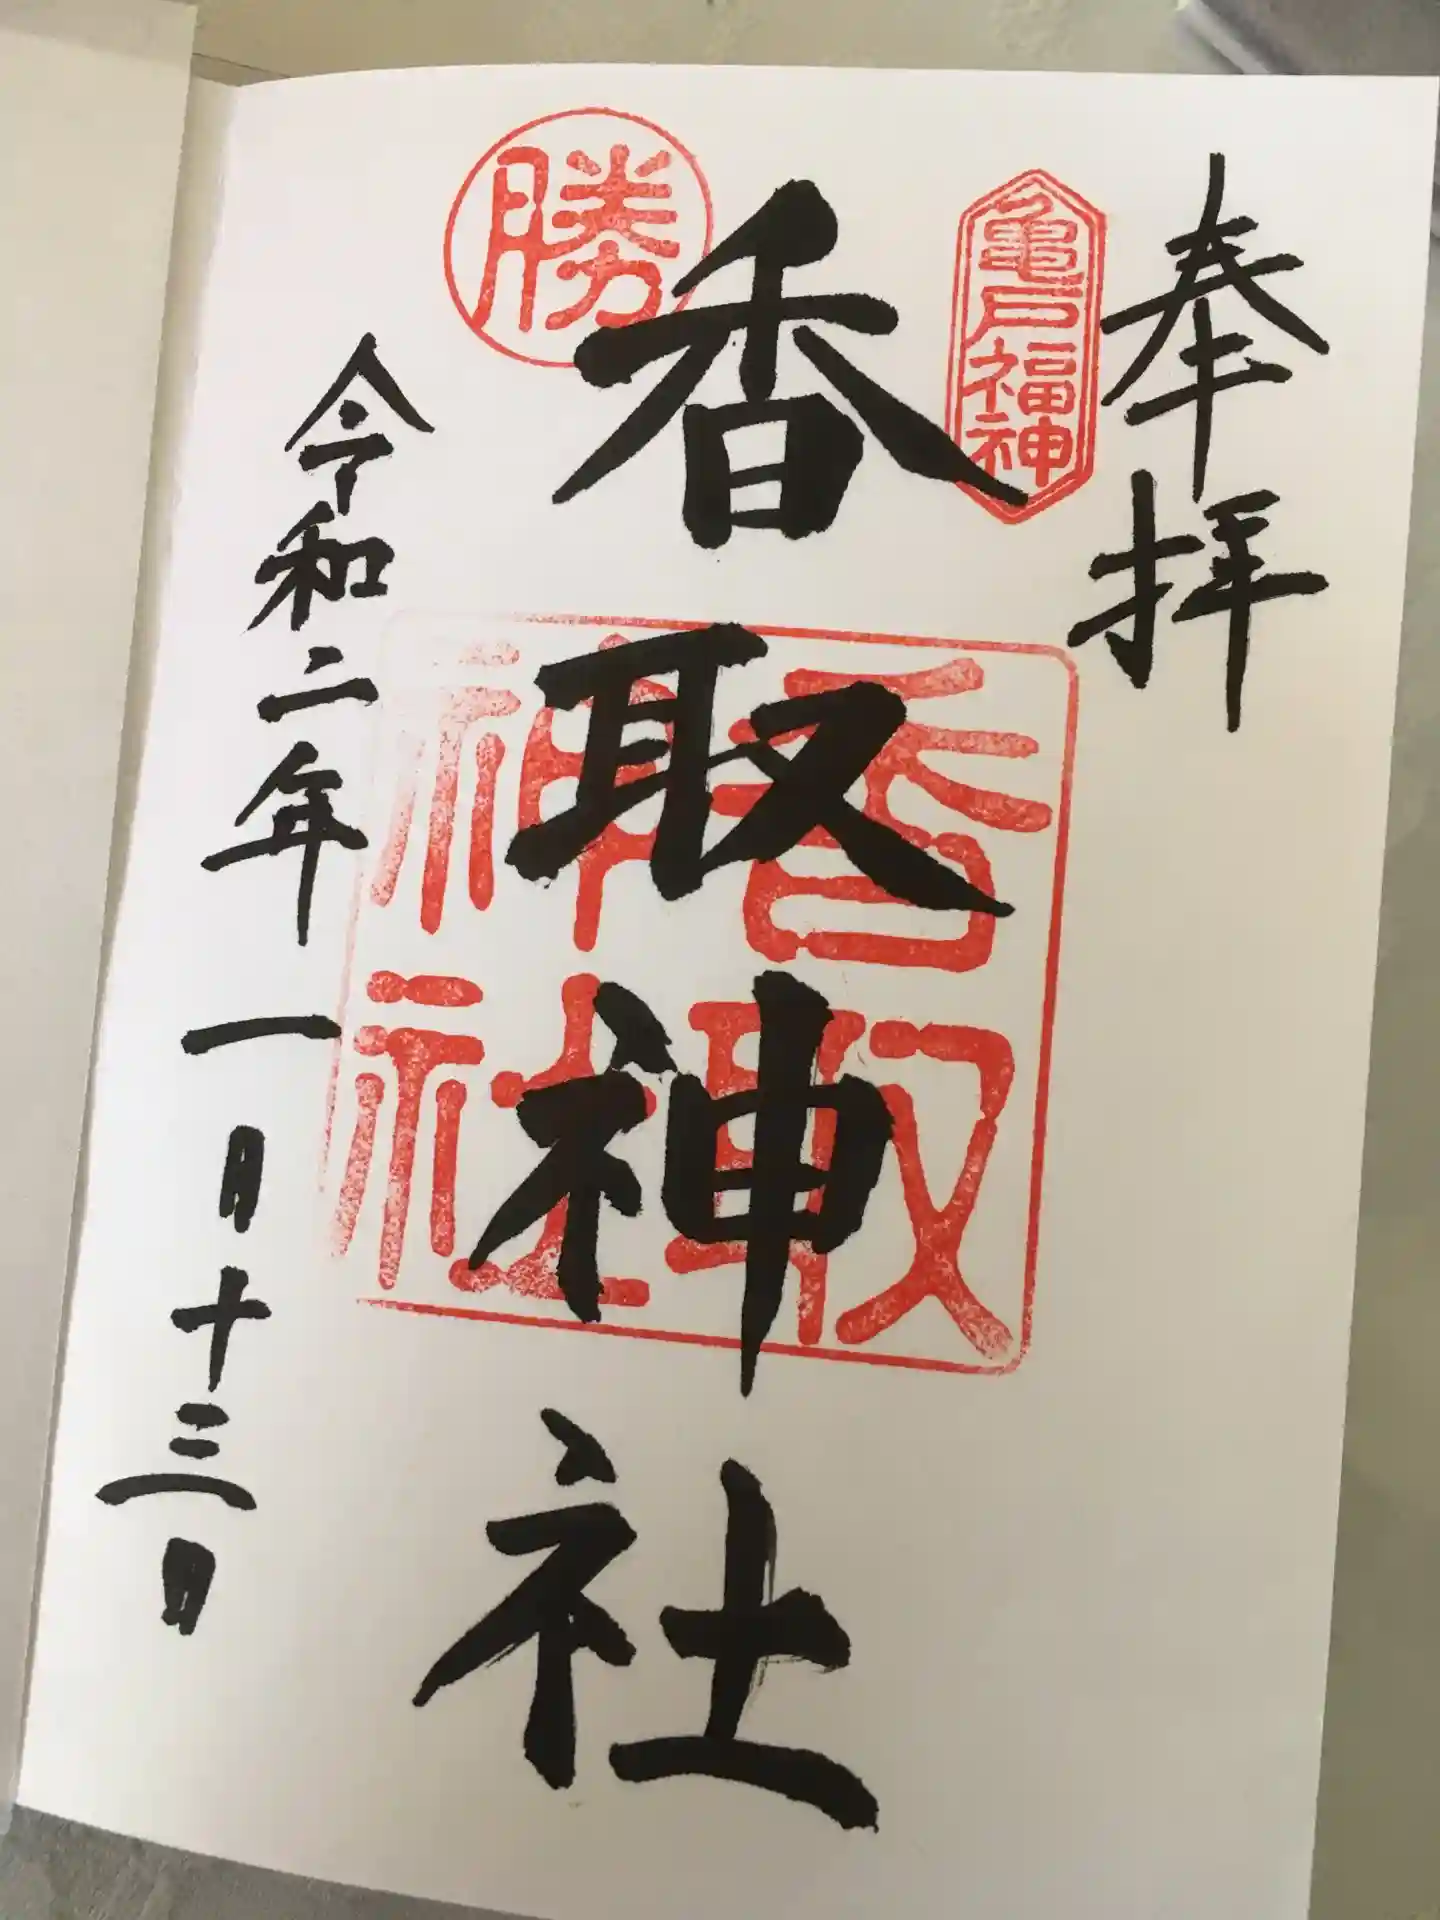 奉拝
亀戸福神
香取神社
勝
香取
神社
令和二年一月十三日